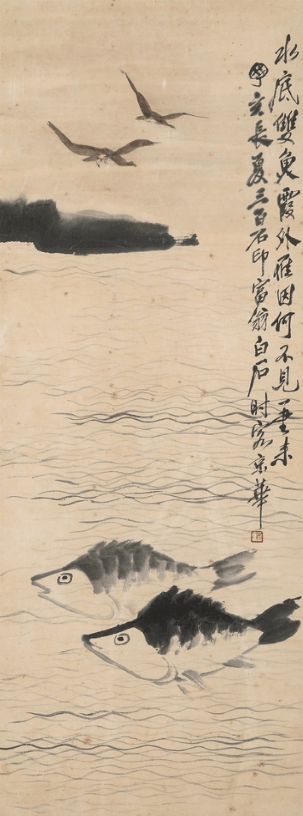 水底雙魚霞外雁因何不見一書來
辛亥長夏三百石印富翁白石時客京華